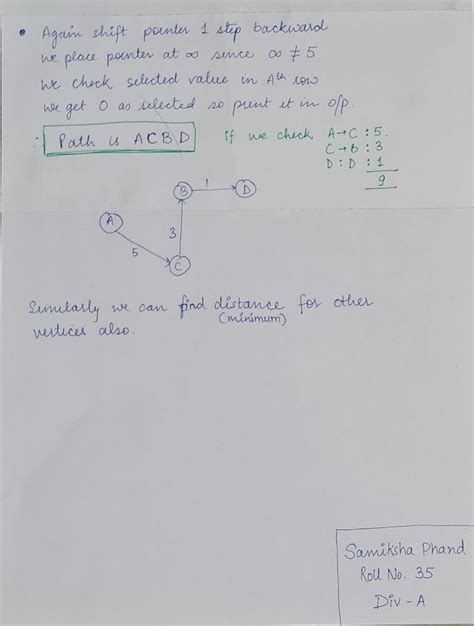 • Again shift pointer 1 step backward
we place pointer at ∞ since ∞ ≠ 5
We check selected value in Ath row
we get 0 as selected so print it in o/p.
∴ Path is ACBD
if we check A→C : 5.
C→B : 3
D : D : 1
9
B 1 D
A
3
5
C
Similarly we can find distance for other
(minimum)
vertices also.
Samiksha Phand
Roll No. 35
Div - A